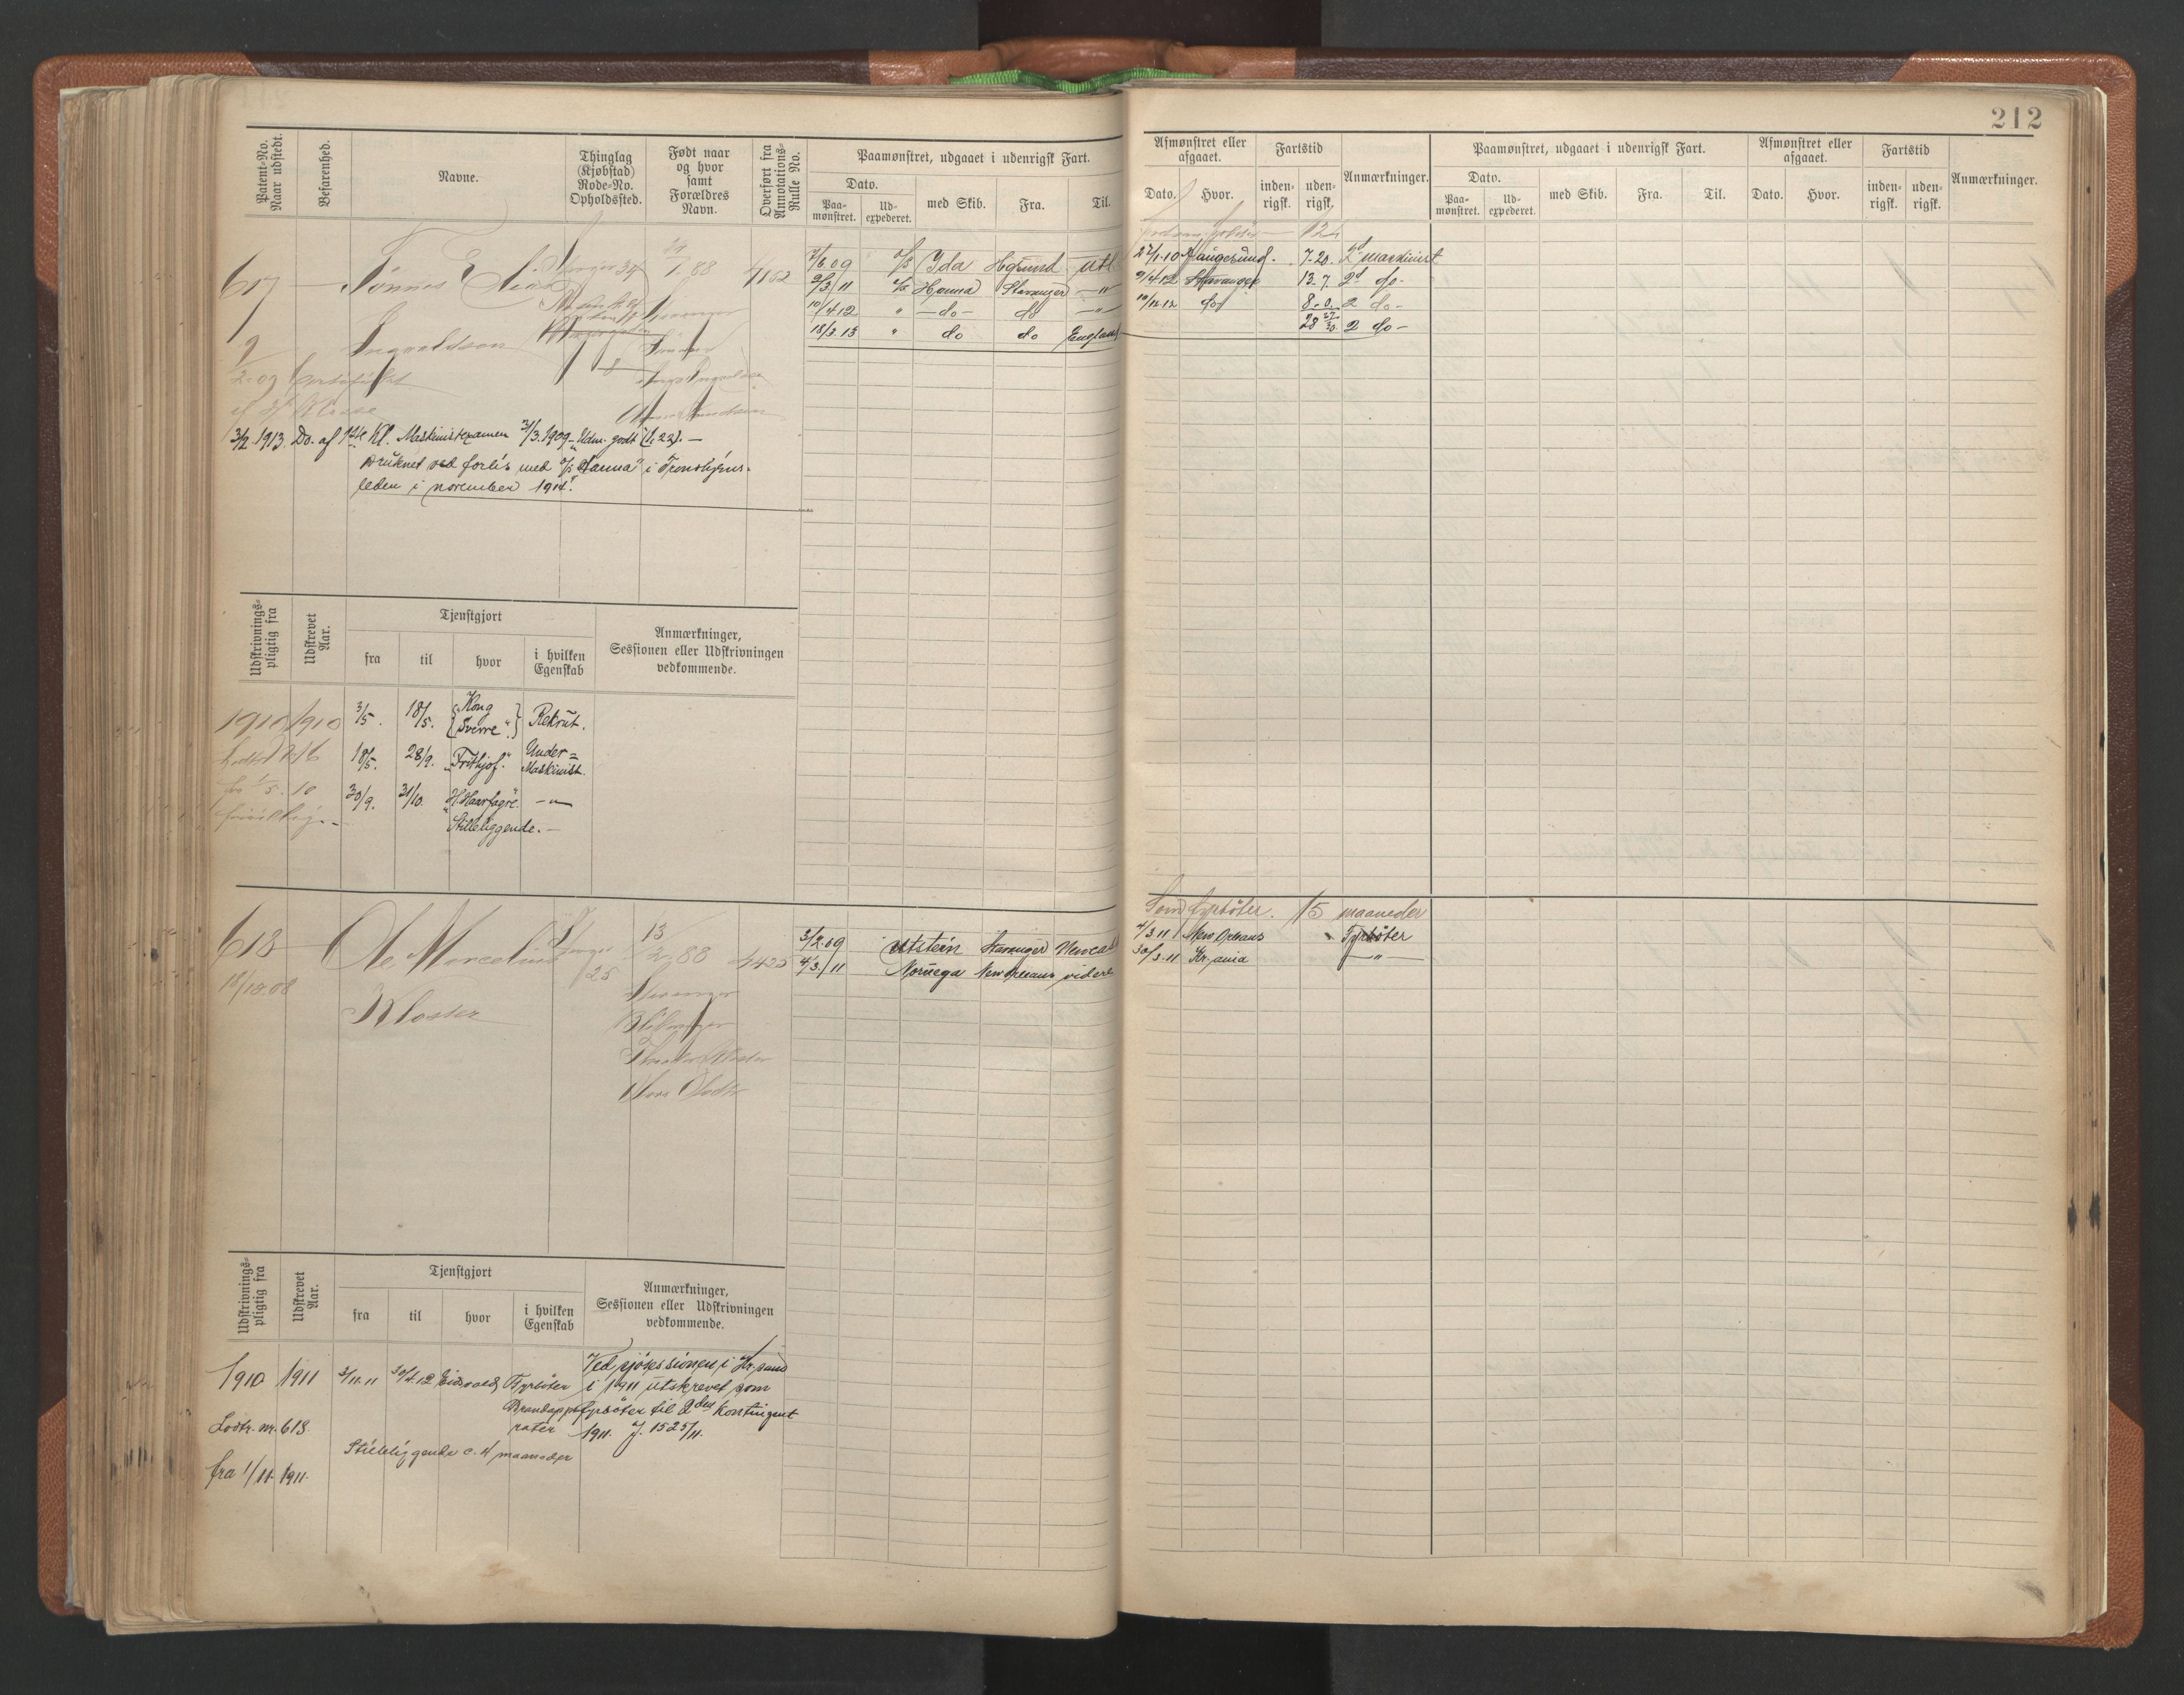 212
Patent-No. Naar udstedt.
Befarenhed.
Navne.
Thinglag (Kjøbstad) Rode-No. Opholdssted.
Født naar og hvor samt Forældres Navn.
Overført fra Annotations-Rulle No.
Paamønstret, udgaaet i udenrigsk Fart.
Dato.
Paa-mønstret.
Ud-expederet.
med Skib.
Fra.
Til.
Afmønstret eller afgaaet.
Dato.
Hvor.
Fartstid
inden-rigsk.
uden-rigsk.
Anmærkninger.
Paamønstret, udgaaet i udenrigsk Fart.
Dato.
Paa-mønstret.
Ud-expederet.
med Skib.
Fra.
Til.
Afmønstret eller afgaaet.
Dato.
Hvor.
Fartstid
inden-rigsk.
uden-rigsk.
Anmærkninger.
617
Tønnes
34
1.88
1162
Ingvaldson
Stavanger
2.09
09 D/S Ida Hgsund utl
3/11 D/S Hanna Stavanger — " —
10/4 12 " — do — do — " —
18/3.13 " do do England
1.10 Haugesund. 7.20. 2d maskinist
9/4 12 Stavanger 13. 7. 2d do -
10/12 12 do 8. 0. 2 do -
28 2 do -
3/2.1913. Do. af 1ste Kl. Maskinistexamen 3.1909 - Udm. godt (1,23). —
Druknet ved forlis med D/S "Hanna" i Trondhjems-
leden i november 1914.
Udskrivnings-pligtig fra
Udskrevet Aar.
Tjenstgjort
fra
til
hvor
i hvilken Egenskab
Anmærkninger, Sessionen eller Udskrivningen vedkommende.
1910 1910 3/5. 18/5. "Kong Sverre". Rekrut.
18/5. 28/9. "Frithjof." Under-Maskinist.
30/9. 31/10. "H. Haarfagre" — " —
Stilleliggende. —
618
Ole Marcelius
Kloster
25
13
2.88
Stavanger
1425
18/12.08
3/2.09 Utstein Stavanger Newca
4/3/11 Noruega New Orleans videre
Som fyrbøter. 15 maaneder
4/3.11 New Orleans Fyrbøter
30/3.11 Kr.ania — " —
Udskrivnings-pligtig fra
Udskrevet Aar.
Tjenstgjort
fra
til
hvor
i hvilken Egenskab
Anmærkninger, Sessionen eller Udskrivningen vedkommende.
1910 1911 2/11.11 30/4.12 Eidsvold Fyrbøter
Lodtr. nr. 618.
fra 1/11. 1911.
Stilleliggende c. 4 maaneder
Ved sjøsessionen i Kr.sand
i 1911 utskrevet som
fyrbøter til 2den Kontingent
1911. J. 1525/11.